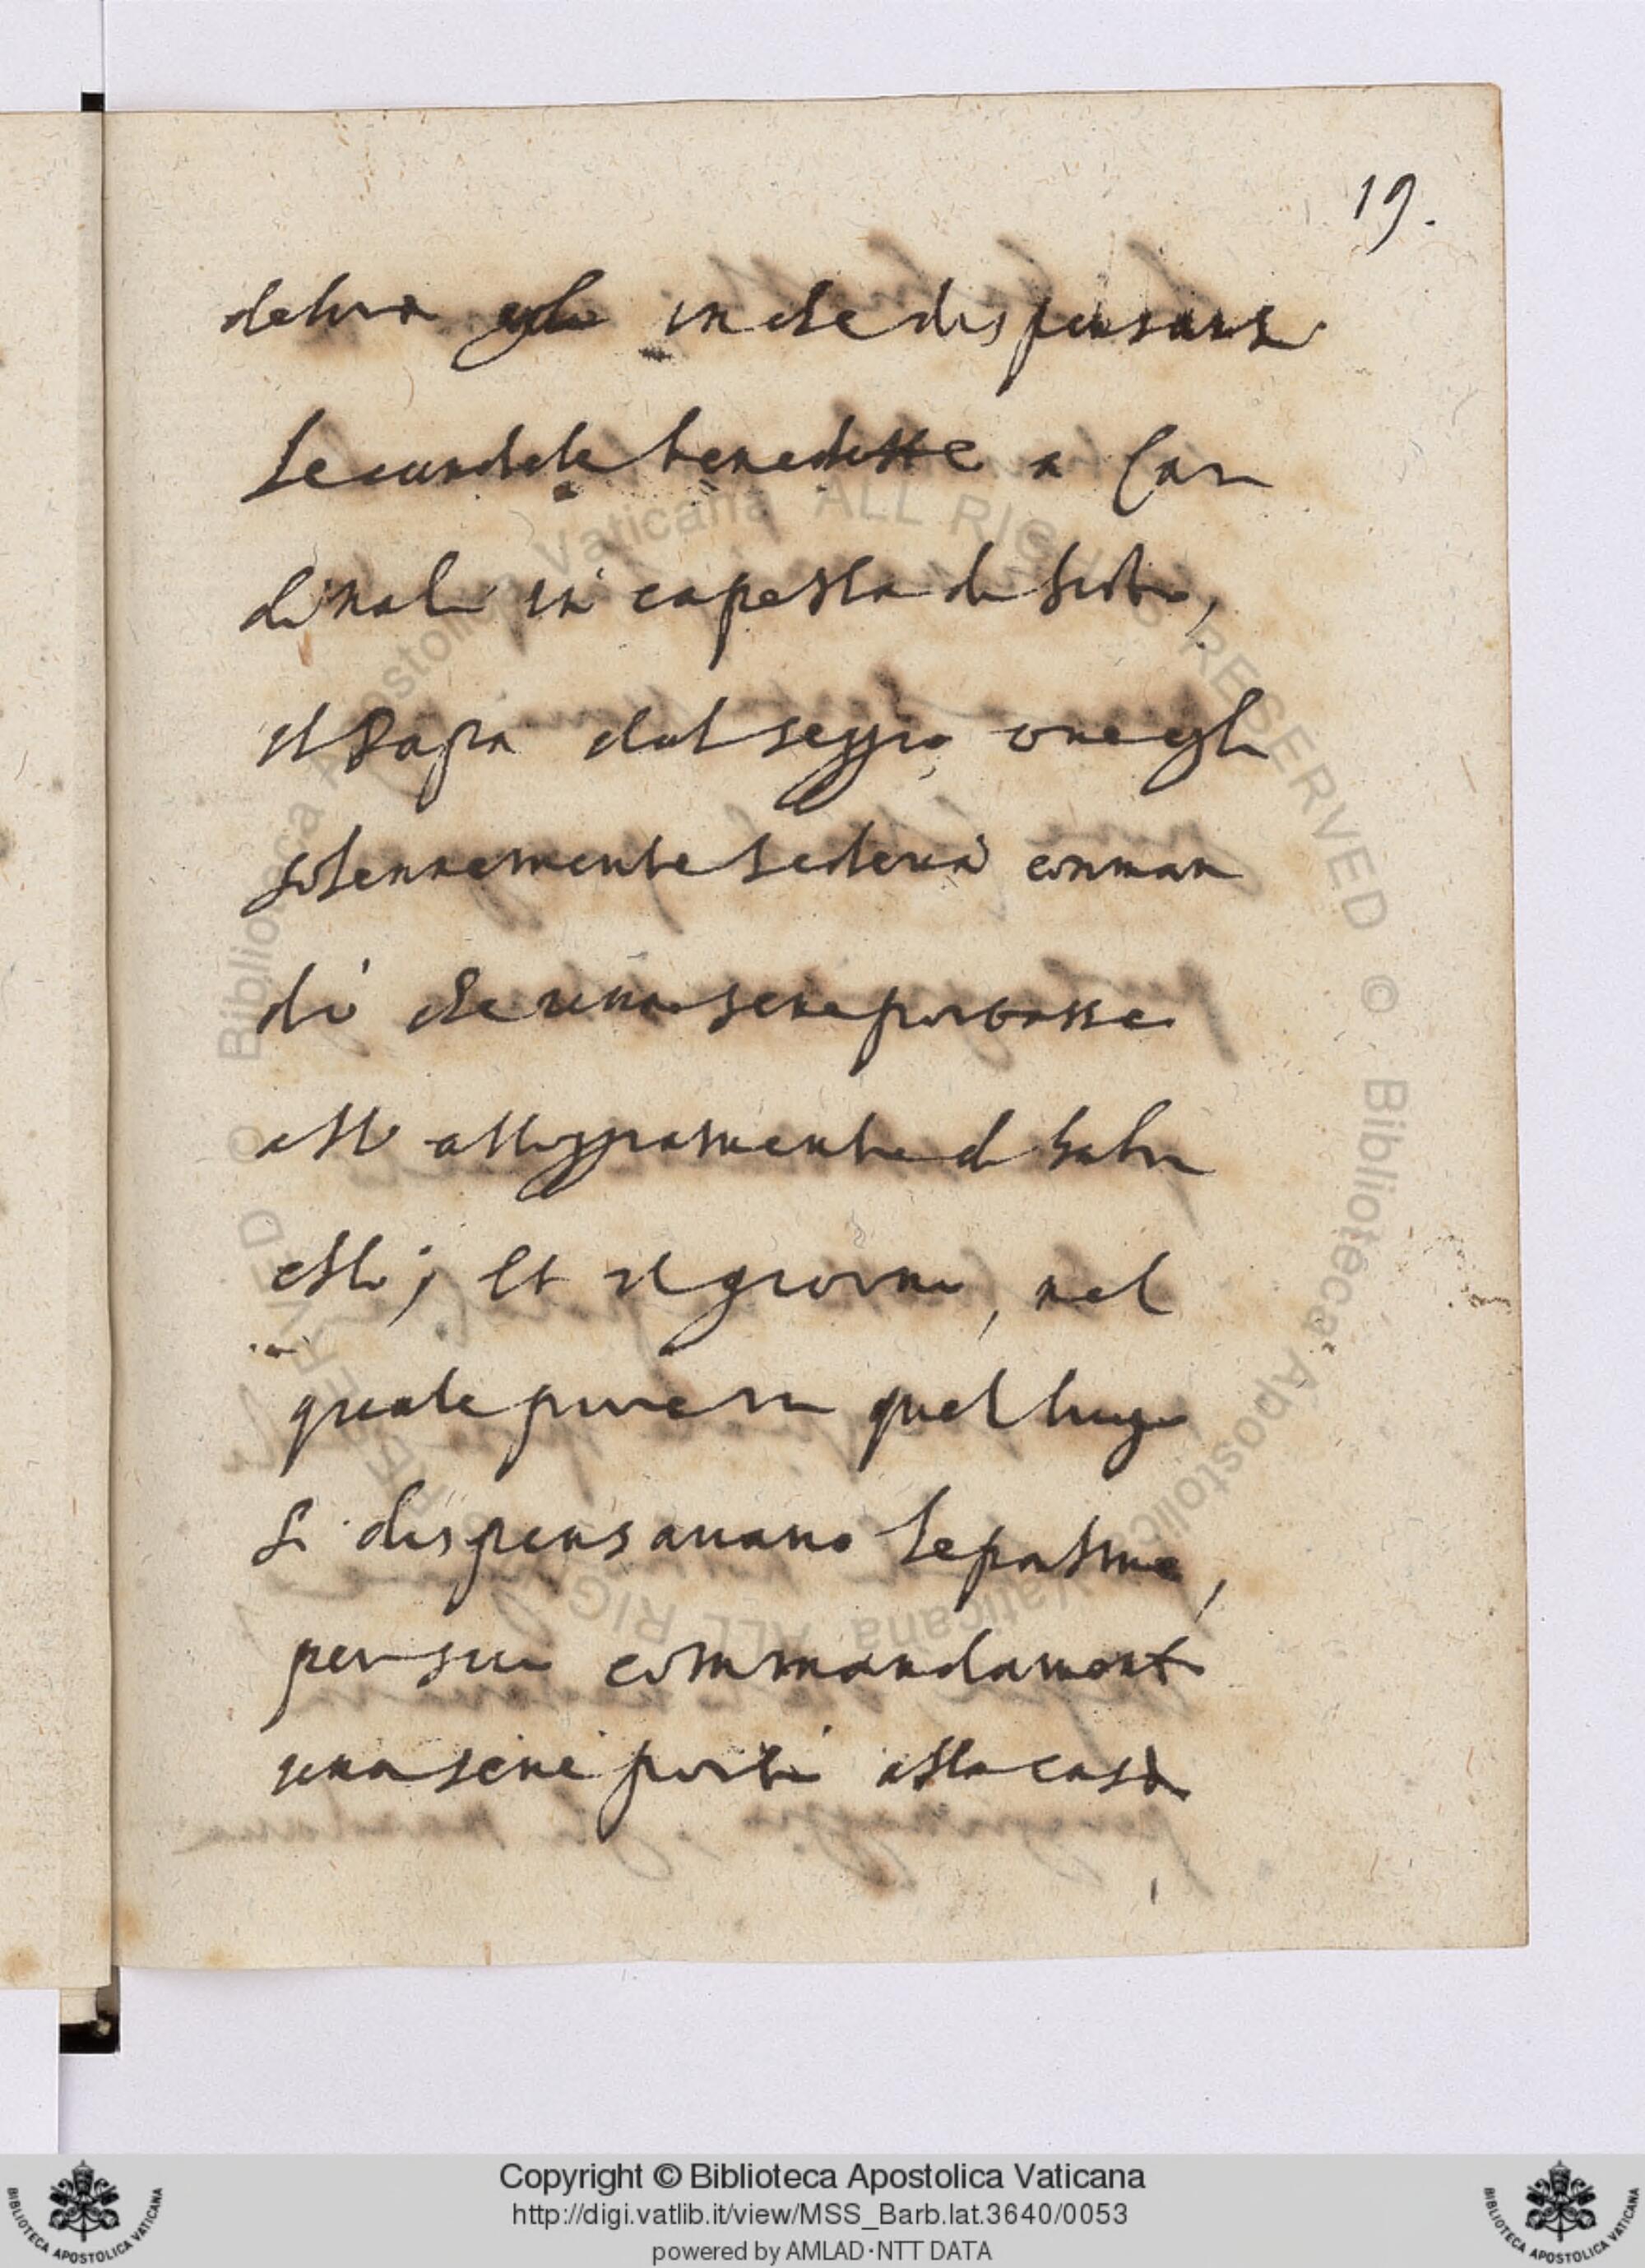 19.
egli in che dispensaua
le candele benedette a Car
dinali in capella di Sisto,
il Papa dal seggio oue egli
solennemente sedeua comman
dò che una se ne portasse
allo alloggiamento di
et il giorno, nel
quale pure in quel luogo
si dispensauano le palme,
per suo commandamento
una se ne portò alla casa
© Biblioteca Apostolica Vaticana ALL RIGHTS RESERVED © Biblioteca Apostolica Vaticana ALL RIGHTS RESERVED
Copyright © Biblioteca Apostolica Vaticana
http://digi.vatlib.it/view/MSS_Barb.lat.3640/0053
powered by AMLAD·NTT DATA
BIBLIOTECA APOSTOLICA VATICANA
BIBLIOTECA APOSTOLICA VATICANA